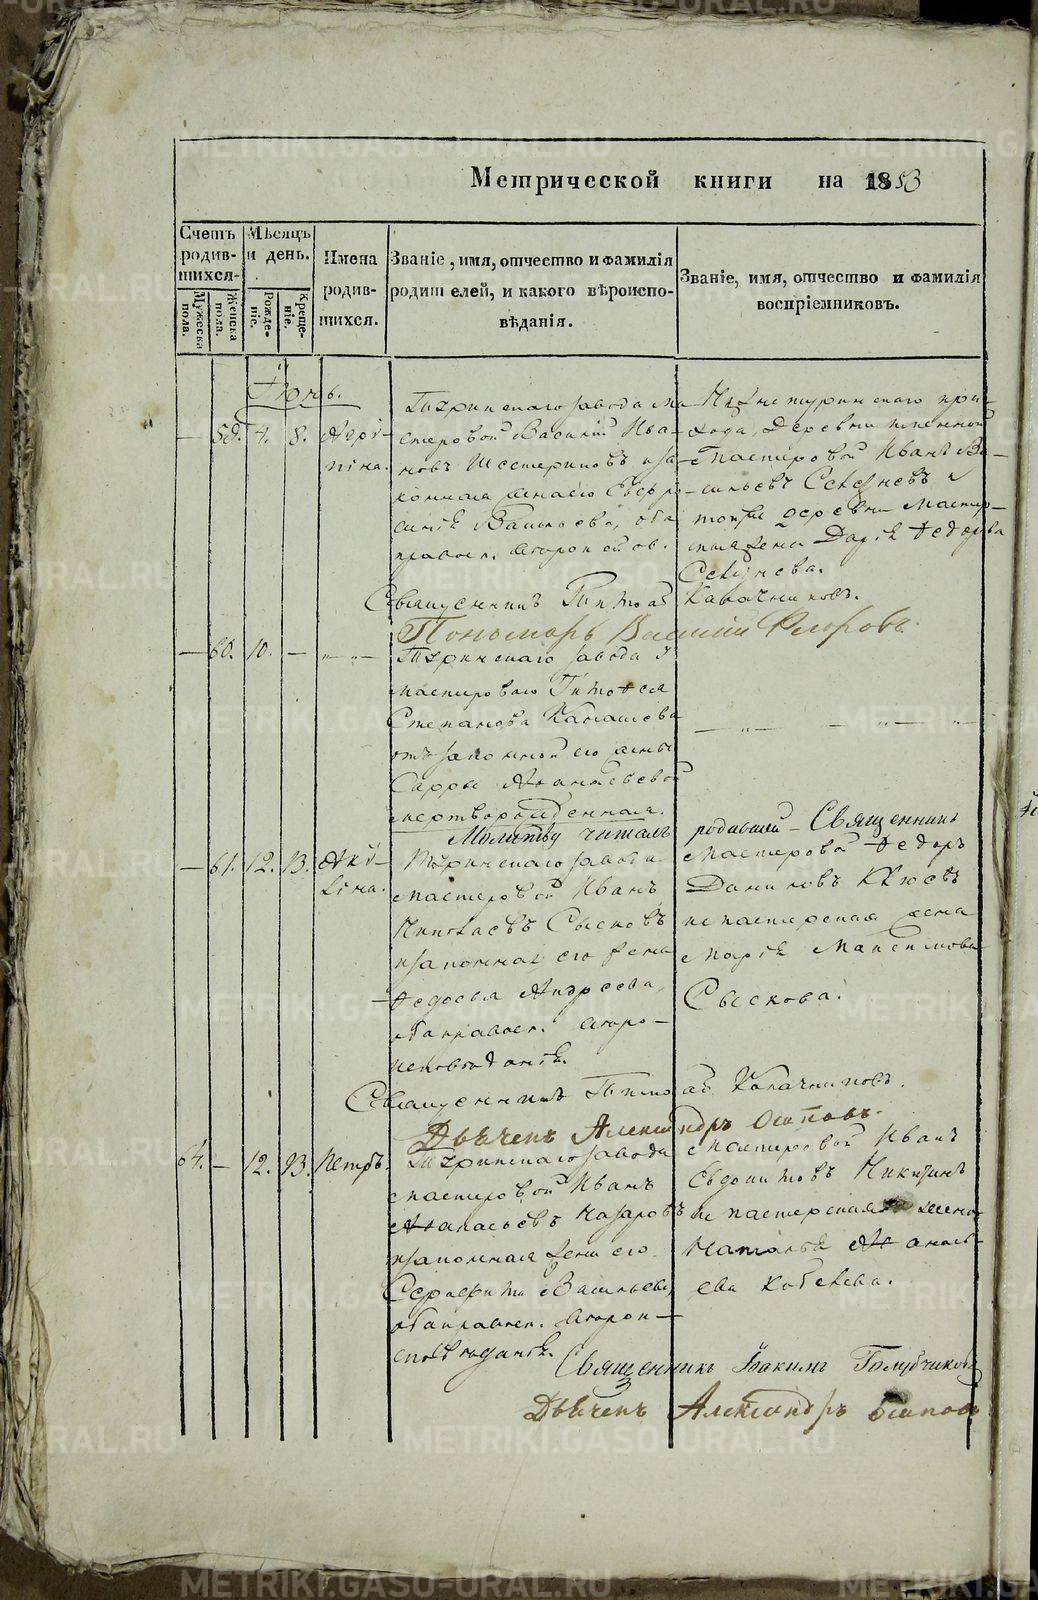 Метрической книги на 1853
Счетъ родив- шихся.
Мужеска пола.
Женска пола.
Мѣсяцъ и день.
Рожде- ніе.
Креще- ніе.
Имена родив- шихся.
Званіе, имя, отчество и фамилія родителей, и какого вѣроиспо- вѣданія.
Званіе, имя, отчество и фамилія воспріемниковъ.
Іюнь.
— 59. 4. 8.
Туринскаго завода ма-
стеровой Василій Ива-
новъ Шестериковъ и за-
конная жена его
оба
православн.
прихода, деревни
мастеровой Иванъ Ва-
сильевъ Селезневъ и
тойже деревни мастер-
ская жена Дарія Федорова
Селезнева.
Священникъ Тимофей Калачниковъ.
Пономарь Василій Флоровъ
— 60. 10. — „ — „ —
Туринскаго завода у
мастероваго Тимофея
Степанова Канашева
отъ законной его жены
Сарры
мертворожденная.
Молитву читалъ родившей - Священникъ
— 61. 12. 13. Аки-
лина.
Туринскаго завода
мастеровой Иванъ
Николаевъ Сысковъ
и законная его жена
Федосья Андреева,
оба православн.
исповѣданія.
мастеровой Федоръ
Даниловъ
и мастерская жена
Марія Максимова
Сыскова.
Священникъ Тимофей Калачниковъ.
Дьячекъ Александръ Осиповъ.
64. — 12. 13. Петръ.
Туринскаго завода
мастеровой Иванъ
Афанасьевъ Назаровъ
и законная жена его
Серафима Васильева,
оба православн.
исповѣданія.
мастеровой Иванъ
Евдокимовъ Никитинъ
и мастерская жена
Наталья Афанась-
ева Кобелева.
Священникъ Іоакимъ Голубчиковъ
Дьячекъ Александръ Осиповъ
METRIKI.GASO-URAL.RU